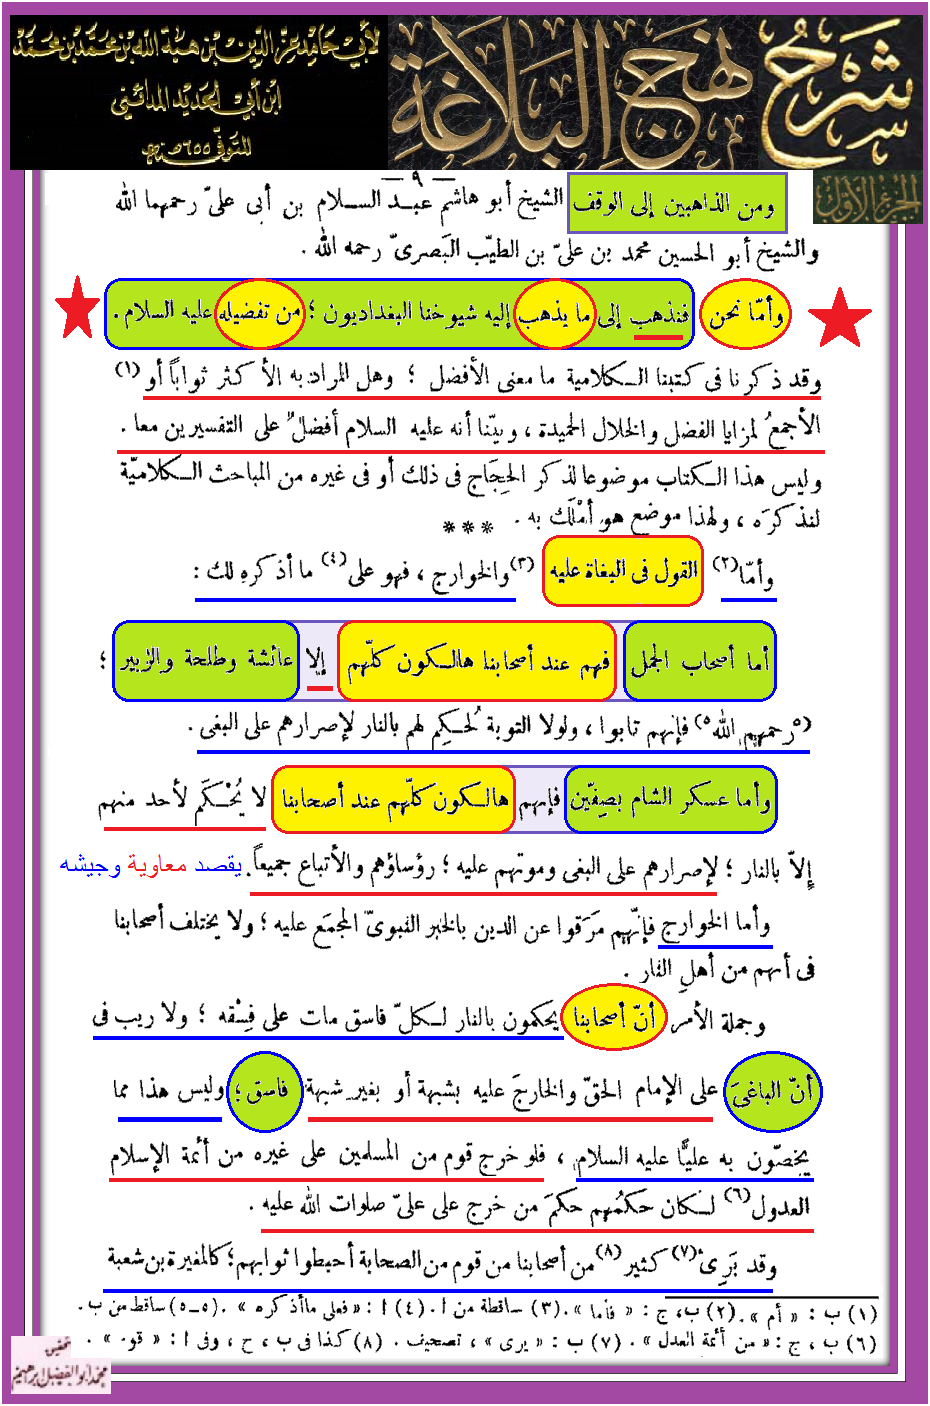 شرح
نهج البلاغة
لأبي حامد عز الدين بن هبة الله بن محمد بن محمد
ابن أبي الحديد المدائني
المتوفى ٦٥٥ هـ
الجزء الأول
— ٩ —
ومن الذاهبين إلى الوقف الشيخ أبو هاشم عبد السلام بن أبى علىّ رحمهما الله
والشيخ أبو الحسين محمد بن علىّ بن الطيّب البَصرىّ رحمه الله .
وأمّا نحن فنذهب إلى ما يذهب إليه شيوخنا البغداديون ؛ من تفضيله عليه السلام .
وقد ذكرنا فى كتبنا الكلامية ما معنى الأفضل ؛ وهل المراد به الأكثر ثواباً أو (١)
الأجمعُ لمزايا الفضل والخلال الحميدة ، وبيّنا أنه عليه السلام أفضلُ على التفسيرين معا .
وليس هذا الكتاب موضوعا لذكر الحِجَاج فى ذلك أو فى غيره من المباحث الكلاميّة
لنذكرَه ، ولهذا موضع هو أمْلَك به .
***
وأمّا (٢) القول فى البغاة عليه (٣) والخوارج ، فهو على (٤) ما أذكره لك :
أما أصحاب الجمل فهم عند أصحابنا هالكون كلّهم إلا عائشة وطلحة والزبير ؛
(٥ رحمهم الله ٥) فإنهم تابوا ، ولولا التوبة لحُكِم لهم بالنار لإصرارهم على البغى .
وأما عسكر الشام بصِفّين فإنهم هالكون كلّهم عند أصحابنا لا يُحْكَم لأحد منهم
إلاّ بالنار ؛ لإصرارهم على البغى وموتهم عليه ؛ رؤساؤهم والأتباع جميعاً. يقصد معاوية وجيشه
وأما الخوارج فإنّهم مَرَقوا عن الدين بالخبر النبوىّ المجمَع عليه ؛ ولا يختلف أصحابنا
فى أنهم من أهلِ النار .
وجملة الأمر أنّ أصحابنا يحكمون بالنار لكلّ فاسق مات على فِسْقه ؛ ولا ريب فى
أنّ الباغىَ على الإمام الحقّ والخارجَ عليه بشبهة أو بغير شبهة فاسق ؛ وليس هذا مما
يخصّون به عليًّا عليه السلام ، فلو خرج قوم من المسلمين على غيره من أئمة الإسلام
العدول (٦) لكان حكمُهم حكمَ من خرج على علىّ صلوات الله عليه .
وقد بَرِئ (٧) كثير (٨) من أصحابنا من قوم من الصحابة أحبطوا ثوابهم ؛ كالمغيرة بن شعبة
(١) ب : « أم » . (٢) ب ، ج : « فأما » . (٣) ساقطة من ا . (٤) ا : « فعلى ما أذكره » . (٥-٥) ساقط من ب .
(٦) ب ، ج : « من أئمة العدل » . (٧) ب : « يرى » ، تصحيف . (٨) كذا فى ب ، ج ، وفى ا : « قوم » .
تحقيق
محمد أبو الفضل إبراهيم